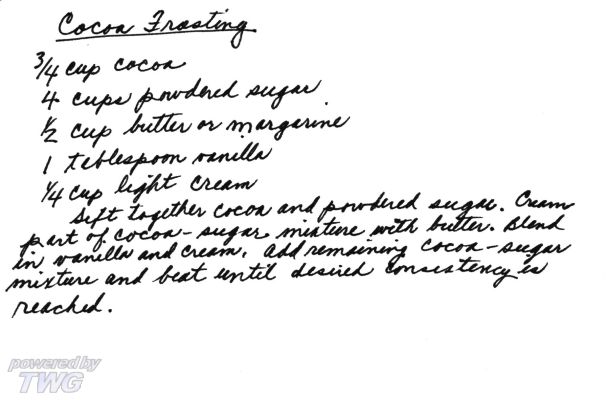 Cocoa Frosting
3/4 cup cocoa
4 cups powdered sugar
1/2 cup butter or margarine
1 tablespoon vanilla
1/4 cup light cream
Sift together cocoa and powdered sugar. Cream
part of cocoa-sugar mixture with butter. Blend
in vanilla and cream. Add remaining cocoa-sugar
mixture and beat until desired consistency is
reached.
powered by
TWG